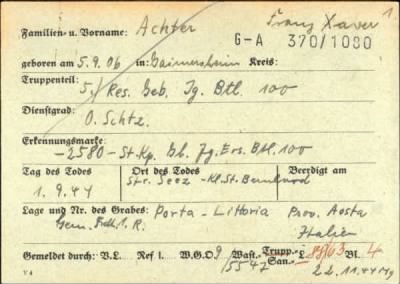 Familien- u. Vorname: Achter Franz Xaver 1
G-A 370/1080
geboren am 5.9.06 in: Gaimersheim Kreis:
Truppenteil: 5./ Res. Geb. Jg. Btl. 100
Dienstgrad: O. Schtz.
Erkennungsmarke: -2580- St. Kp. Gb. Jg. Ers. Btl. 100
Tag des Todes Ort des Todes Beerdigt am
1.9.44 Str. Seez - Kl. St. Bernhard
Lage und Nr. des Grabes: Porta - Littoria Prov. Aosta
Gem. 1. R. Italien
Gemeldet durch: V.L. Ref I. W.G.O. 9 Wast.- Trupp.- San.- L 8863 Bl. 4
/5547 22.11.44
V 4